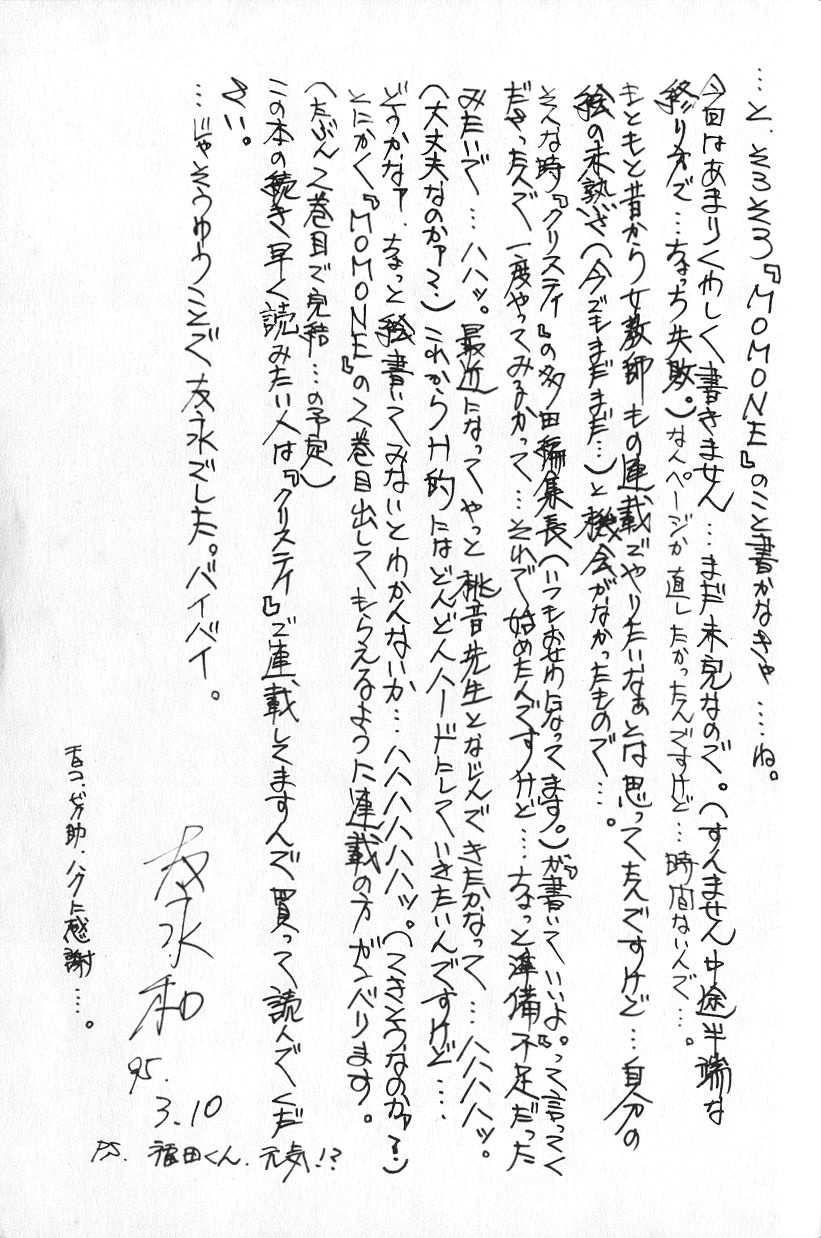 …と、そろそろ『MOMONE』のこと書かなきゃ……ね。
今回はあまりくわしく書きません…まだ未完なので。(すんません中途半端な
終り方で…ちょっち失敗。)なんページか直したかったんですけど…時間ないんで…。
もともと昔から女教師もの連載でやりたいなぁとは思ってたんですけど…自分の
絵の未熟さ(今でもまだまだ…)と機会がなかったもので…。
そんな時『クリスティ』の多田編集長(いつもお世わになってます。)が『書いていいよ。』って言ってく
ださったんで一度やってみるかって…それで始めたんですけど…ちょっと準備不足だった
みたいで…ハハッ。最近になってやっと桃音先生となじんできたかなって…ハハハハッ。
(大丈夫なのかァ?)これからH的にはどんどんハードにしていきたいんですけど…
どうかなァ、ちょっと絵書いてみないとわかんないか…ハハハハハハッ。(てきとうなのかァ?)
とにかく『MOMONE』の2巻目出してもらえるように連載の方ガンバります。
(たぶん2巻目で完結…の予定)
この本の続き早く読みたい人は『クリスティ』で連載してますんで買って読んでくだ
さい。
…じゃそうゆうことで友永でした。バイバイ。
友永和
95.
3.10
P.S. 福田くん、元気!?
助、ハクに感謝…。